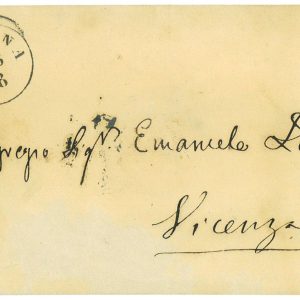 NA
gregio Sigr Emanuele
Vicenza